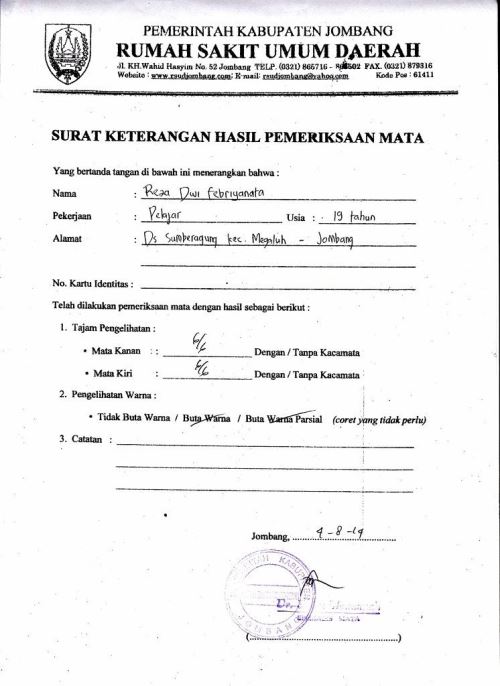 PEMERINTAH KABUPATEN JOMBANG
RUMAH SAKIT UMUM DAERAH
Jl. KH.Wahid Hasyim No. 52 Jombang TELP. (0321) 865716 - FAX. (0321) 879316
Website : www.rsudjombang.com; E-mail: rsudjombang@yahoo.com Kode Pos : 61411
SURAT KETERANGAN HASIL PEMERIKSAAN MATA
Yang bertanda tangan di bawah ini menerangkan bahwa :
Nama : Reza Dwi Febriyanata
Pekerjaan : Pelajar Usia : . 19 tahun
Alamat : Ds Sumberagung kec. Megaluh - Jombang
No. Kartu Identitas :
Telah dilakukan pemeriksaan mata dengan hasil sebagai berikut :
1. Tajam Pengelihatan :
• Mata Kanan : : 6/6 Dengan / Tanpa Kacamata
• Mata Kiri : 6/6 Dengan / Tanpa Kacamata
2. Pengelihatan Warna :
• Tidak Buta Warna / Buta Warna / Buta Warna Parsial (coret yang tidak perlu)
3. Catatan :
Jombang, 4-8-14
KABUPATEN
JOMBANG
MATA
(........................................)